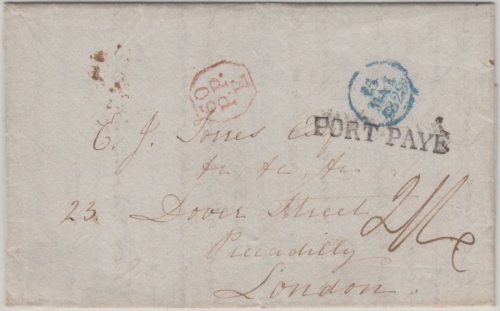 60
P.P.
P.M
PORT PAYÉ
E. J. Jones Esq
&c &c &c
23. Dover Street
Piccadilly
London.